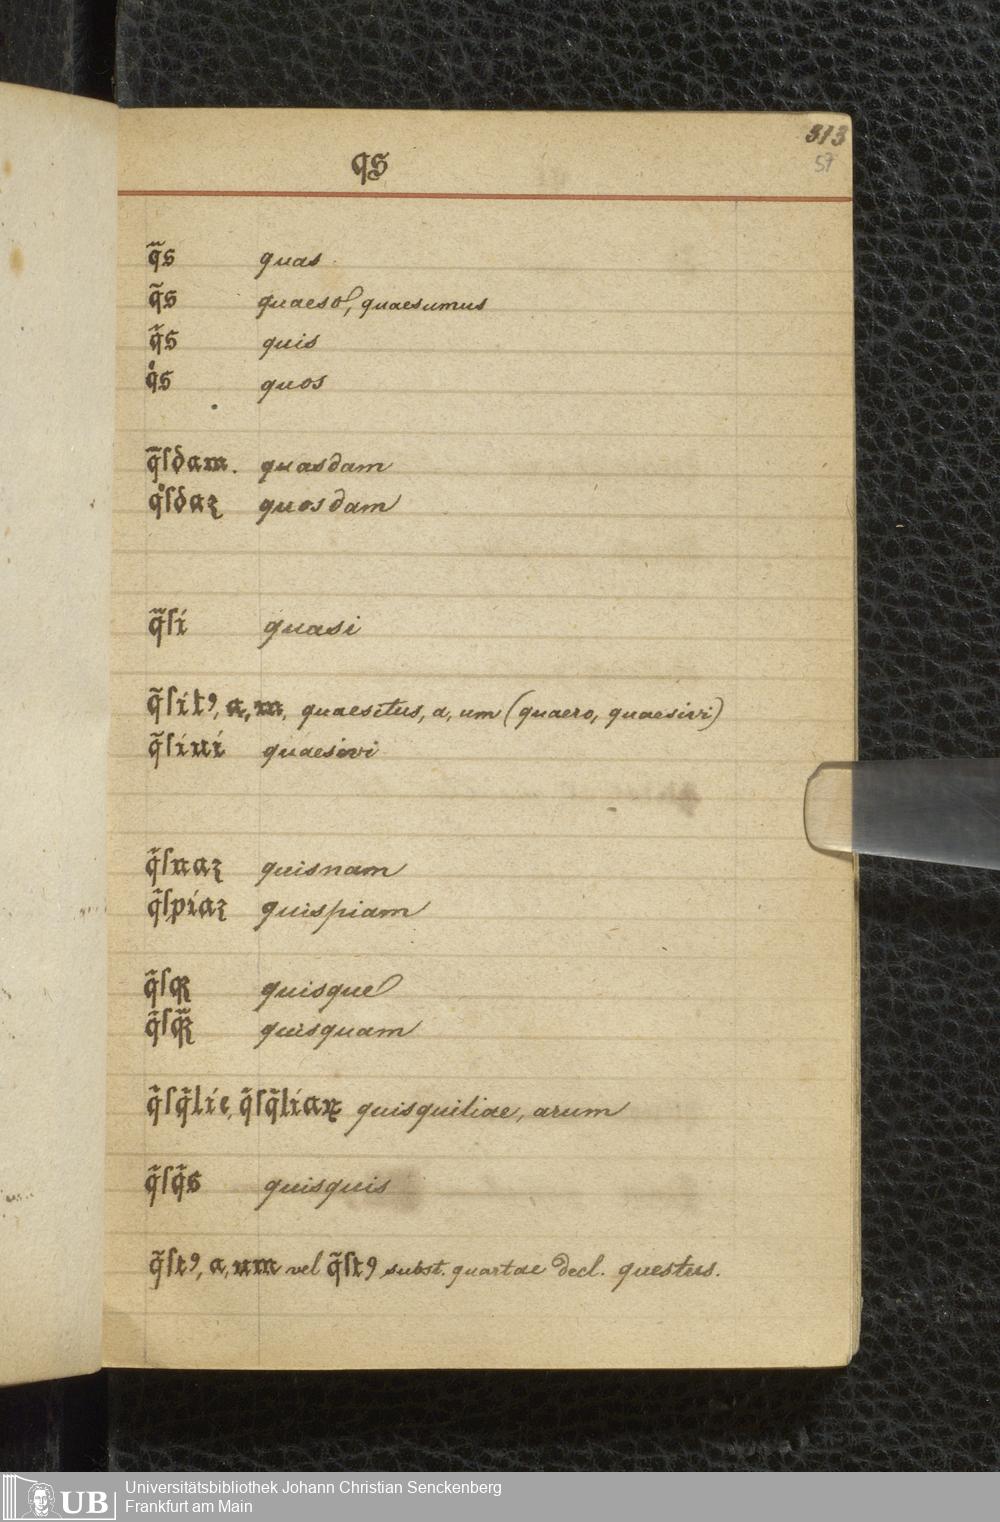 313
57
qs
q̃s quas
q̃s quaeso, quaesumus
q̃s quis
q̊s quos
q̃ſdam. quasdam
q̊ſdaꝫ quosdam
q̃ſi quasi
q̃ſitꝰ, a, m, quaesitus, a, um (quaero, quaesivi)
q̃ſiui quaesivi
q̃ſnaꝫ quisnam
q̃ſpiaꝫ quispiam
q̃ſqꝫ quisque
q̃ſq̃ꝫ quisquam
q̃ſq̃lie, q̃ſq̃liaꝝ quisquiliae, arum
q̃ſq̃s quisquis
q̃ſtꝰ, a, um vel q̃ſtꝰ subst. quartae decl. questus.
UB Universitätsbibliothek Johann Christian Senckenberg
Frankfurt am Main